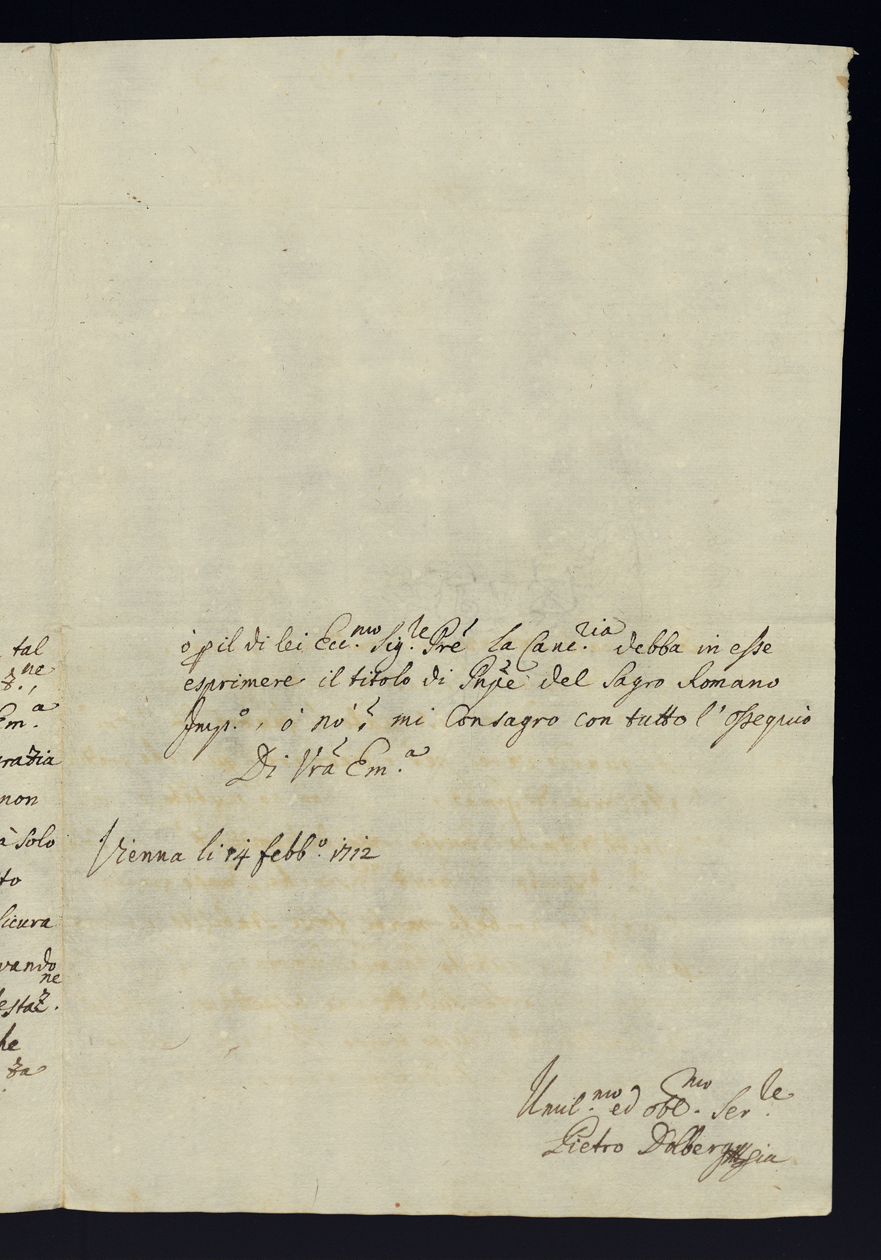 tal
z.ne,
Em.a
grazia
non
à solo
to
sicura
vando
estaz.ne
he
za
ò p il di lei Ecc.mo Sig.re Pre la Canc.ria debba in esse
esprimere il titolo di Pnpe del Sagro Romano
Imp.o, ò nò; mi Consagro con tutto l'ossequio
Di Vra Em.a
Vienna li 14 febb.o 1712
Umil.mo ed obl.mo Ser.le
Pietro